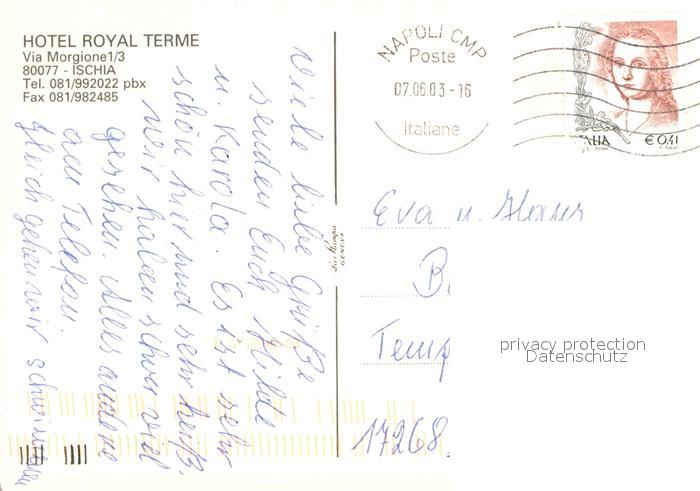 HOTEL ROYAL TERME
Via Morgione1/3
80077 - ISCHIA
Tel. 081/992022 pbx
Fax 081/982485
Viele liebe Grüße
senden Euch
u. Karola. Es ist sehr
schön hier und sehr heiß.
Wir haben schon viel
gesehen. Alles andere
am Telefon.
Gleich gehen wir schwimmen
NAPOLI CMP
Poste
07.06.03-16
Italiane
ITALIA
ROMA
€ 0,41
T. TULLI
GENOVA
Eva u. Klaus
B.
Temp
17268.
privacy protection
Datenschutz